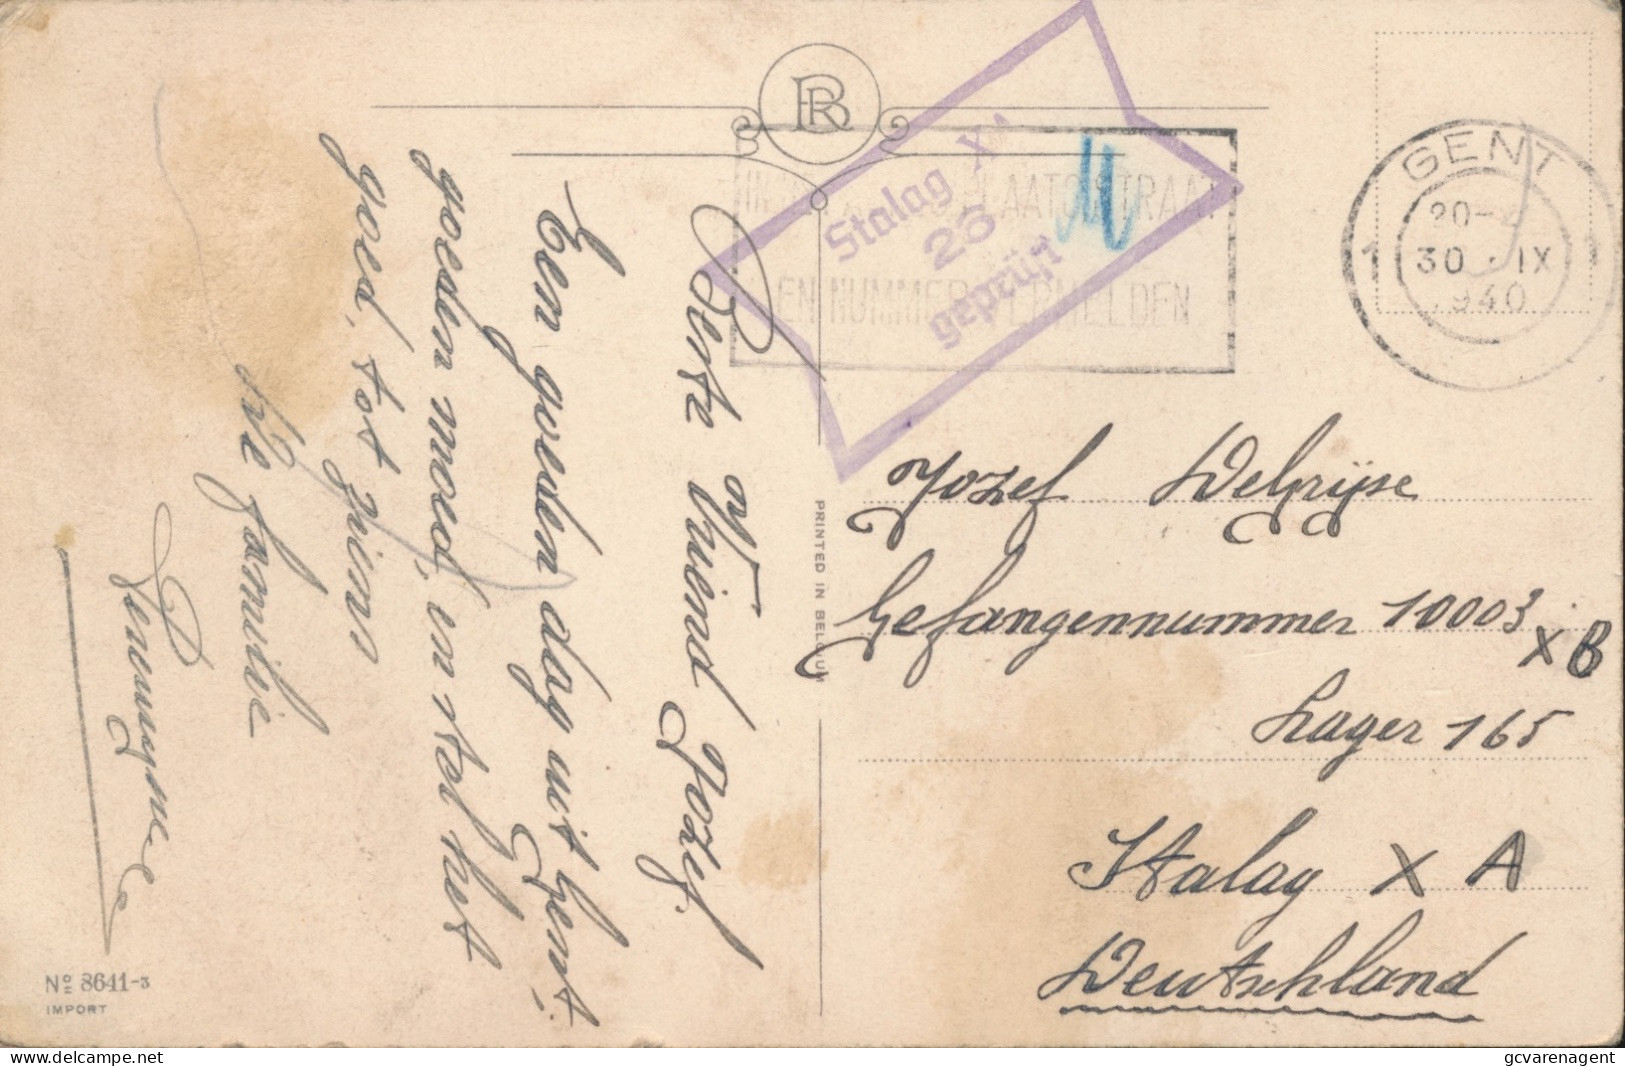 BR
Stalag X
26
geprüft
PLAATS STRAAT
EN NUMMER VERMELDEN
GENT
1
20-
30 · IX
1940
Beste Vriend Jozef
Een goeden dag uit Gent.
goeden moed, en stel het
goed, tot ziens
De familie
PRINTED IN BELGIUM
Jozef Delrijse
Gefangennummer 10003
X B
Lager 165
Stalag X A
Deutschland
Nº 8641-3
IMPORT
www.delcampe.net
gcvarenagent